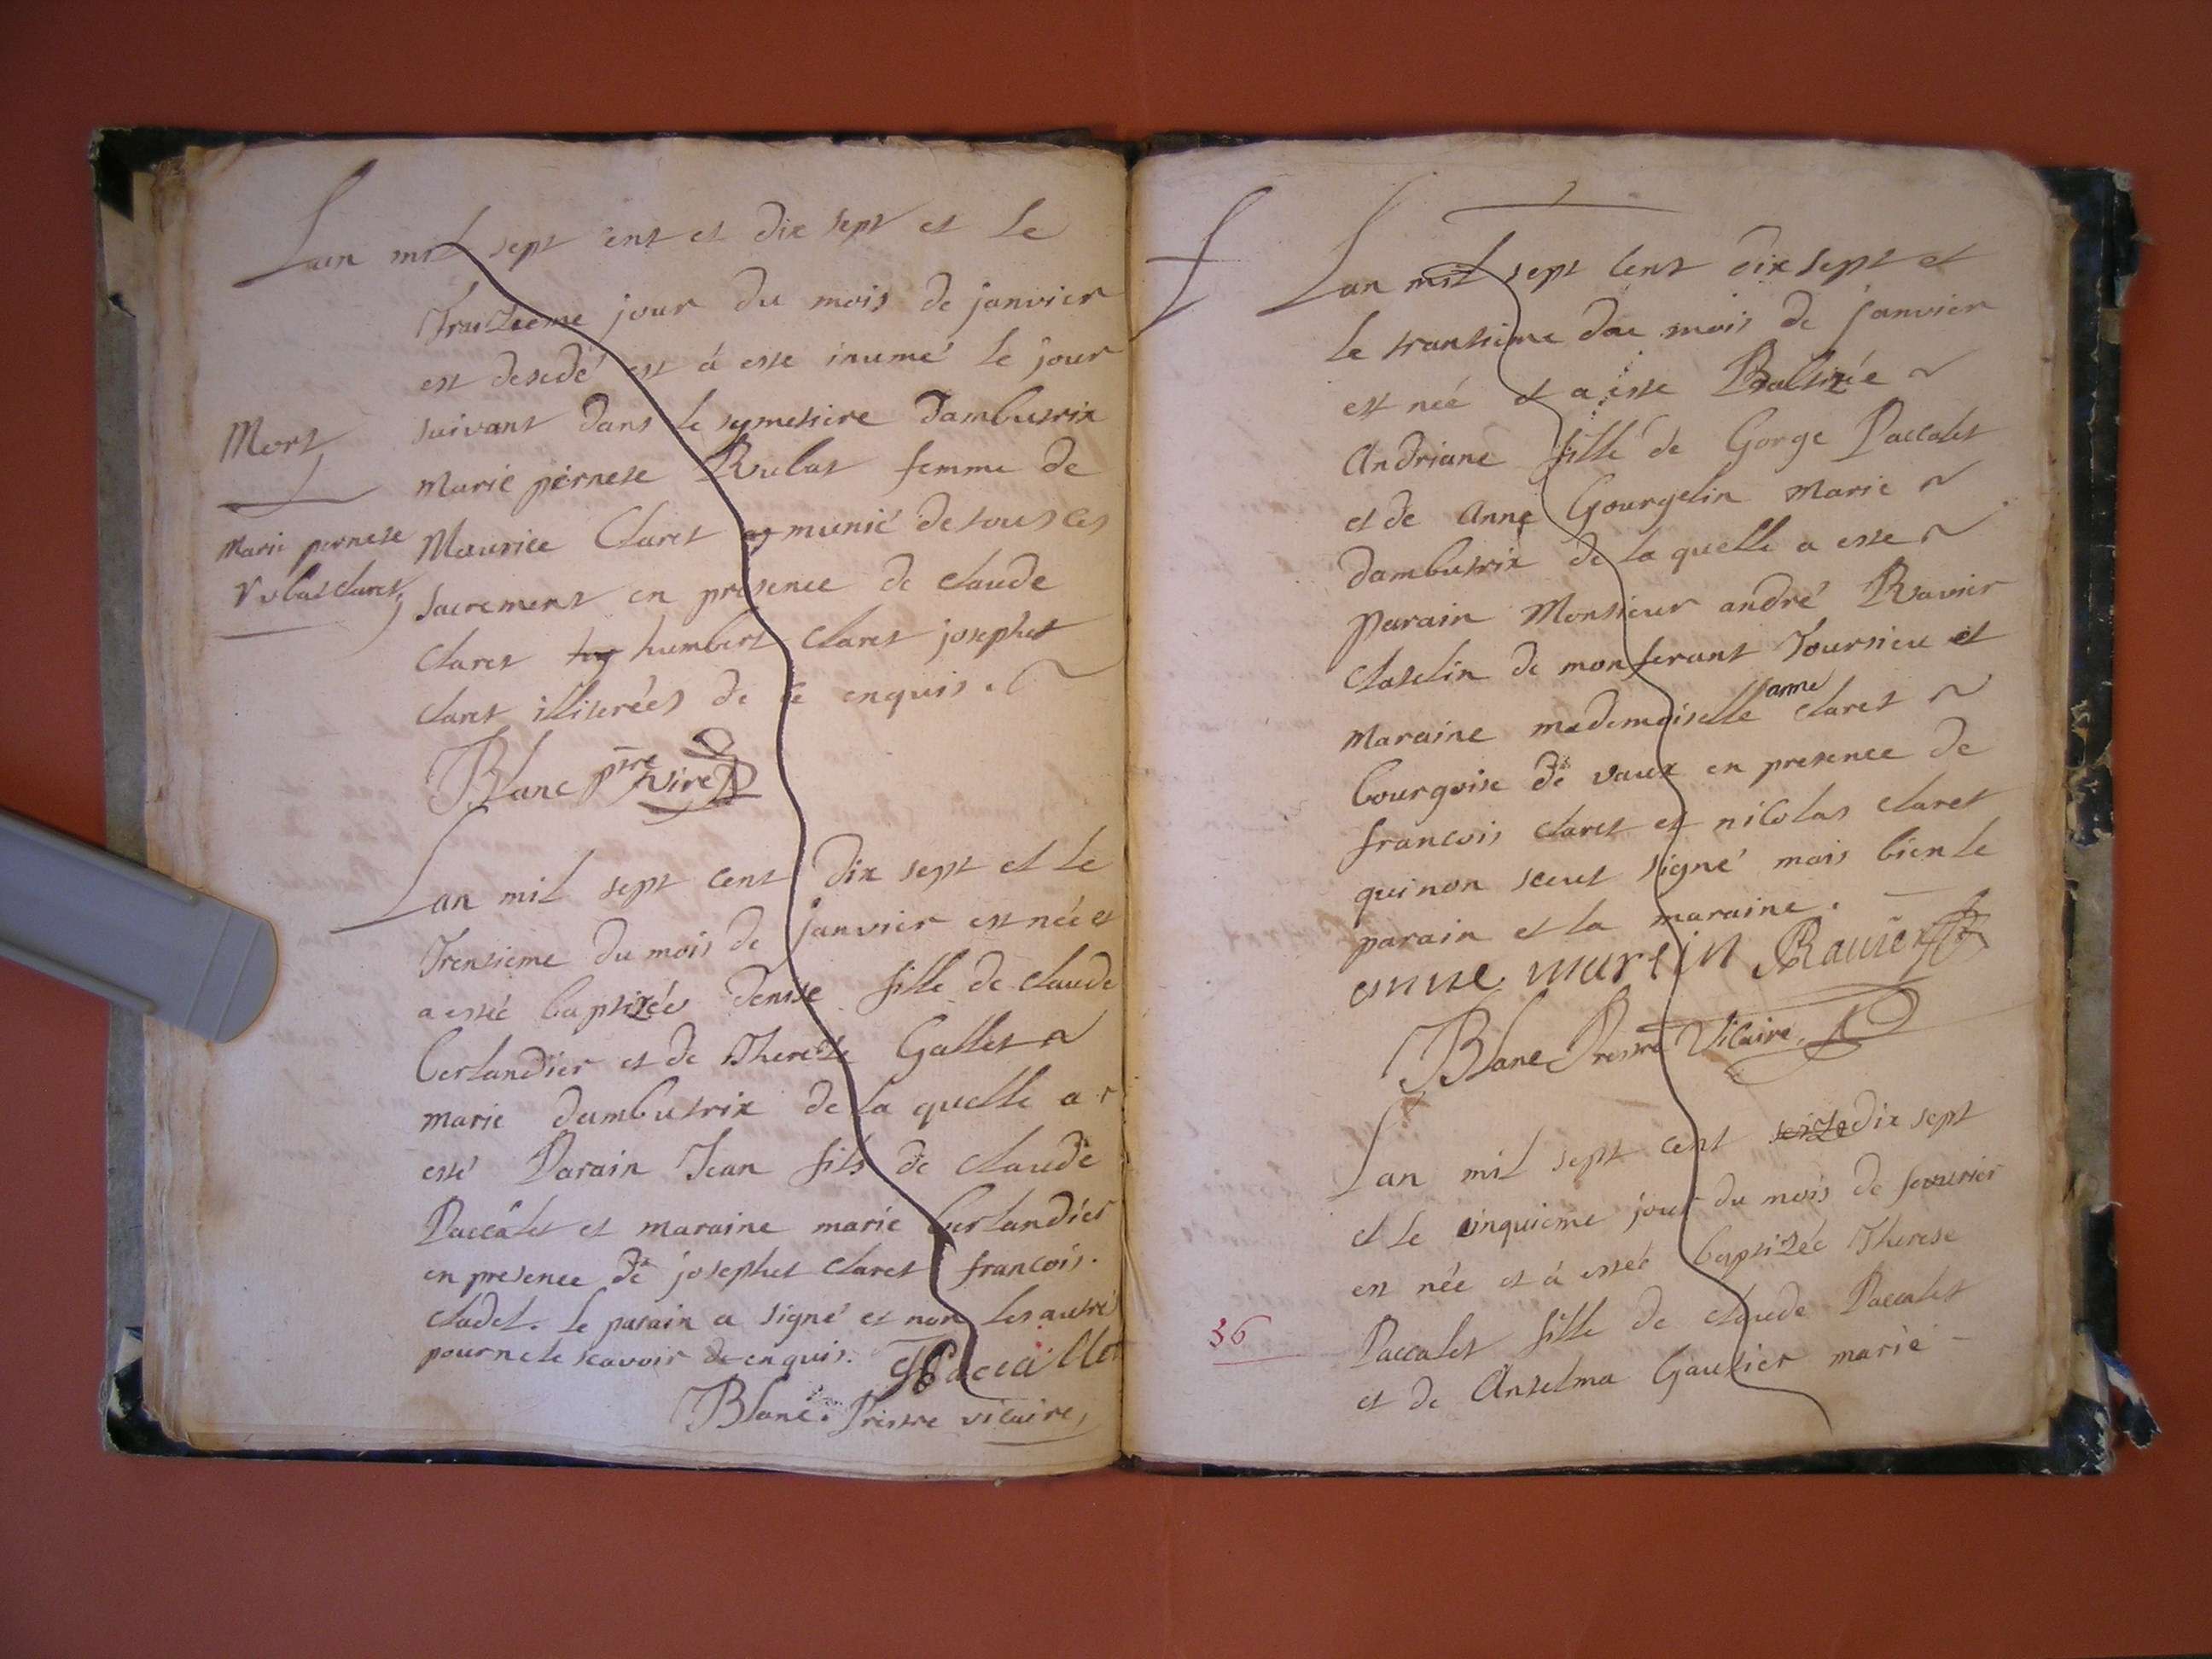 Lan mil sept cent et dix sept et le
Traizieme jour du mois de janvier
est desedé est à esté inumé le jour
suivant dans le symetiere dambutrix
Mort
marie pernete Rubat femme de
marie pernete
Maurice Claret munié de tous les
Rubat claret
sacrement en présence de claude
claret humbert claret josephet
claret illiterées de ce enquis.
Blanc ptre vire
Lan mil sept cent dix sept et le
Trentieme du mois de janvier est née et
a esté baptizée denise fille de claude
berlandier et de Therese Gallet
marie dambutrix de la quelle a
esté Parain Jean fils de claude
Paccalet et maraine marie berlandier
en presence de josephet claret francois
cladel. le parain a signé et non les autre
pour ne le scavoir de enquis. Paccallet
Blanc. Prestre vicaire
Lan mil sept cent dix sept et
le trantieme due mois de janvier
est née et a esté Baltizée
Andriane fille de Gorge Paccalet
et de anne Gourgelin marie
dambutrix de la quelle a esté
parain Monsieur andré Ravier
claselin de monferant Tournieu et
maraine mademoiselle anne claret
bourgoise de vaux en presence de
francois claret et nicolas claret
qui non sceut signé mais bien le
parain et la maraine.
anne martin Rauier
Blanc Prestre Vicaire
Lan mil sept cent seize dix sept
et le cinquieme jour du mois de fevurier
est née et à estée baptizée Therese
36
Paccalet fille de claude Paccalet
et de Anselma Gautier marié